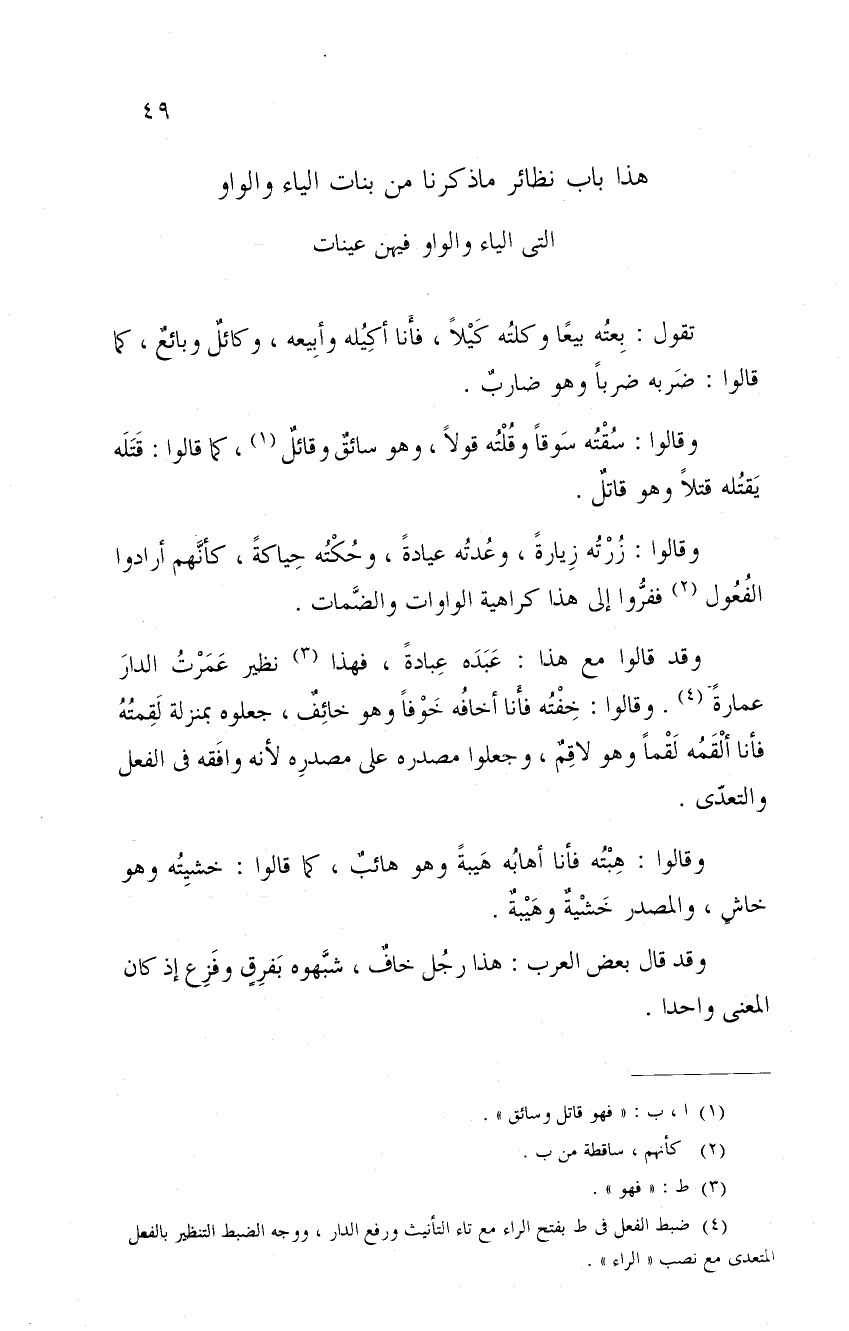 ٤٩
هذا باب نظائر ماذكرنا من بنات الياء والواو
التى الياء والواو فيهن عينات
تقول : بِعتُه بيعًا وكلتُه كَيْلاً ، فأَنا أكِيُله وأبيعه ، وكائلٌ وبائعٌ ، كما
قالوا : ضَربه ضرباً وهو ضاربٌ .
وقالوا : سُقْتُه سَوقاً وقُلْتُه قولاً ، وهو سائقٌ وقائلٌ (١) ، كما قالوا : قَتَلَه
يَقتُله قتلاً وهو قاتلٌ .
وقالوا : زُرْتُه زِيارةً ، وعُدتُه عيادةً ، وحُكْتُه حِياكةً ، كأنَّهم أرادوا
الفُعُول (٢) ففرُّوا إلى هذا كراهية الواوات والضَّمات .
وقد قالوا مع هذا : عَبَدَه عِبادةً ، فهذا (٣) نظير عَمَرْتُ الدارَ
عمارةً (٤) . وقالوا : خِفْتُه فأَنا أخافُه خَوْفاً وهو خائِفٌ ، جعلوه بمنزلة لَقِمتُهُ
فأنا ألْقَمُه لَقْماً وهو لاقِمٌ ، وجعلوا مصدره على مصدرِه لأنه وافَقه فى الفعل
والتعدّى .
وقالوا : هِبْتُه فأنا أهابُه هَيبةً وهو هائبٌ ، كما قالوا : خشيِتُه وهو
خاشٍ ، والمصدر خَشْيةٌ وهَيْبةٌ .
وقد قال بعض العرب : هذا رجُل خافٌ ، شبَّهوه بَفرِقٍ وفَزِعٍ إذ كان
المعنى واحدا .
(١) ا ، ب : « فهو قاتل وسائق » .
(٢) كأنهم ، ساقطة من ب .
(٣) ط : « فهو » .
(٤) ضبط الفعل فى ط بفتح الراء مع تاء التأنيث ورفع الدار ، ووجه الضبط التنظير بالفعل
المتعدى مع نصب « الراء » .